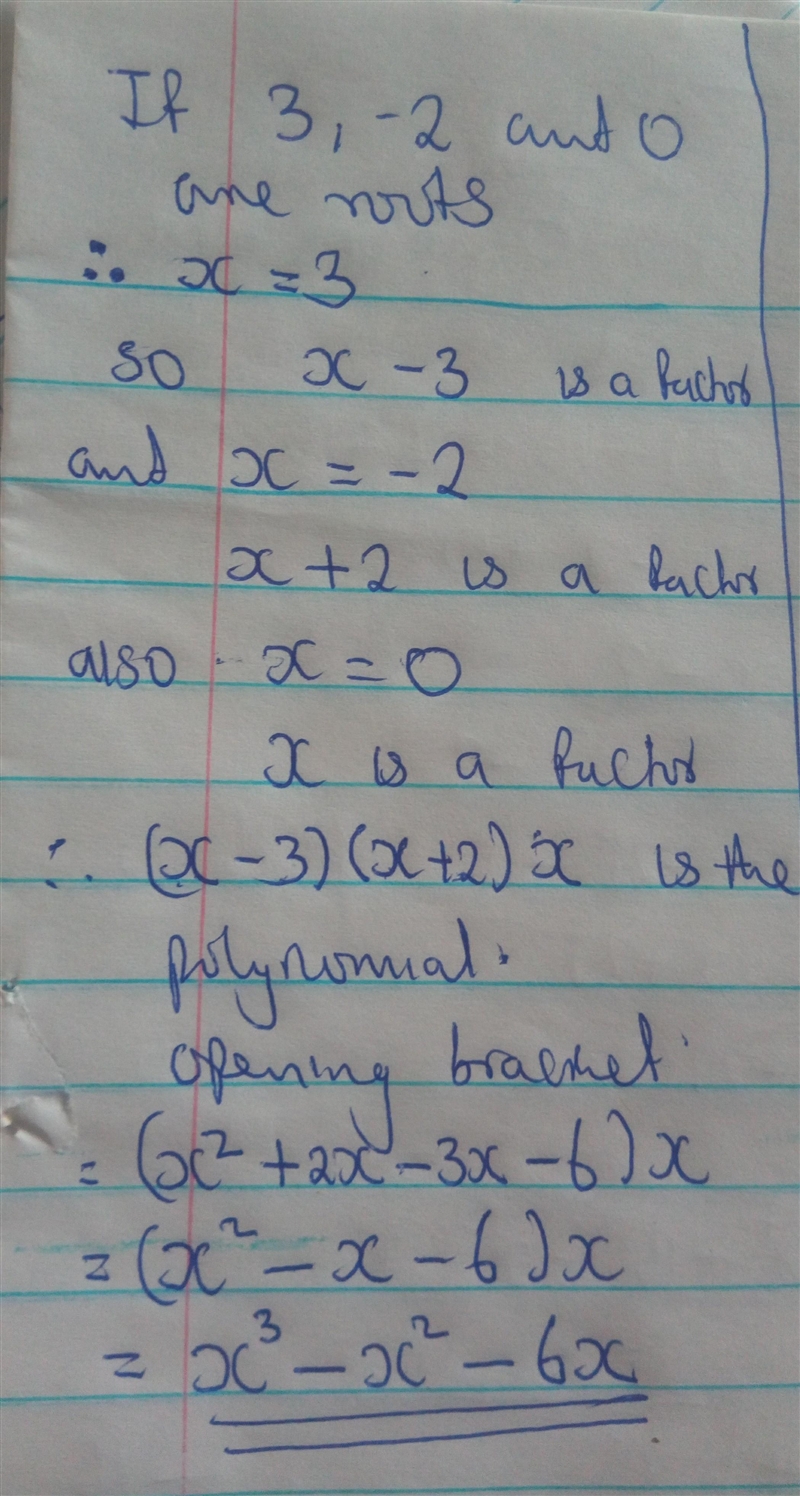 If 3, -2 and 0
are roots
∴ x = 3
so x - 3 is a factor
and x = -2
x + 2 is a factor
also x = 0
x is a factor
∴ (x - 3)(x + 2)x is the
polynomial.
opening bracket
= (x² + 2x - 3x - 6)x
= (x² - x - 6)x
= x³ - x² - 6x